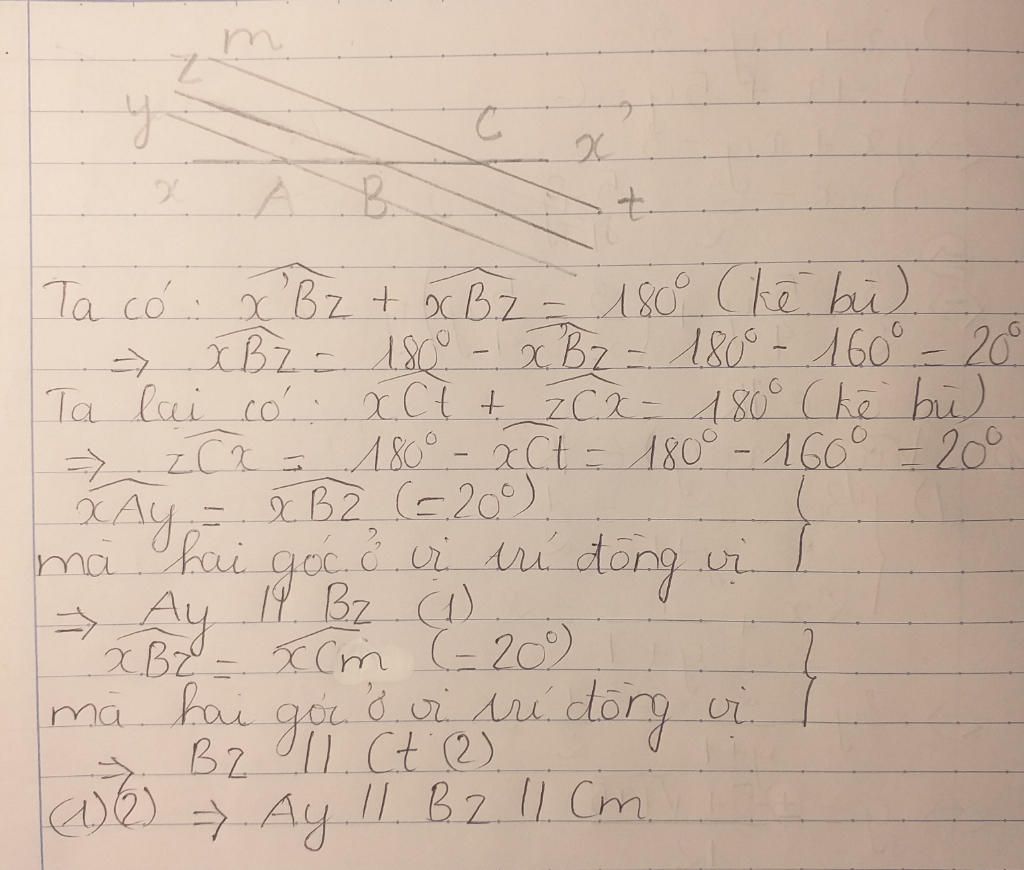 m
z
y
C
x'
x
A
B
t
Ta có: x'Bz + xBz = 180° (kề bù)
⇒ xBz = 180° - x'Bz = 180° - 160° = 20°
Ta lại có: xCt + zCx = 180° (kề bù)
⇒ zCx = 180° - xCt = 180° - 160° = 20°
xAy = xBz (= 20°)
mà hai góc ở vị trí đồng vị
⇒ Ay // Bz (1)
xBz = xCm (= 20°)
mà hai góc ở vị trí đồng vị
⇒ Bz // Ct (2)
(1)(2) ⇒ Ay // Bz // Cm